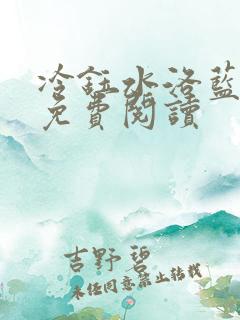 冷鈺水洛藍
免費閱讀
吉野碧
未经同意禁止转载